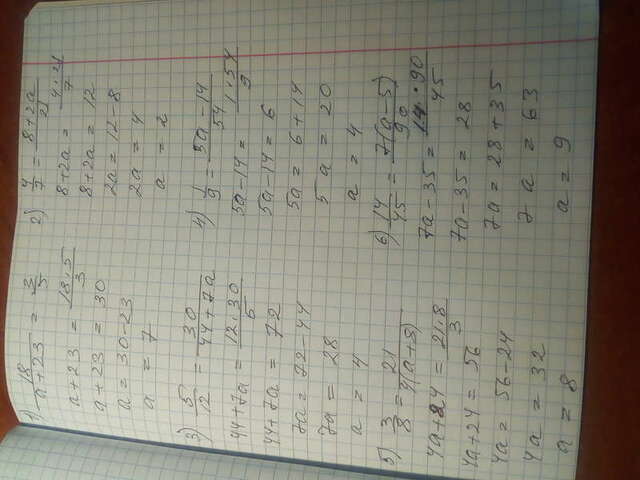 1) 18/(a+23) = 3/5
a+23 = 18·5/3
a+23 = 30
a = 30-23
a = 7
2) 4/7 = (8+2a)/21
8+2a = 4·21/7
8+2a = 12
2a = 12-8
2a = 4
a = 2
3) 5/12 = 30/(44+7a)
44+7a = 12·30/5
44+7a = 72
7a = 72-44
7a = 28
a = 4
4) 1/9 = (5a-14)/54
5a-14 = 1·54/9
5a-14 = 6
5a = 6+14
5a = 20
a = 4
5) 3/8 = 21/4(a+6)
4a+24 = 21·8/3
4a+24 = 56
4a = 56-24
4a = 32
a = 8
6) 14/45 = 7(a-5)/90
7a-35 = 14·90/45
7a-35 = 28
7a = 28+35
7a = 63
a = 9